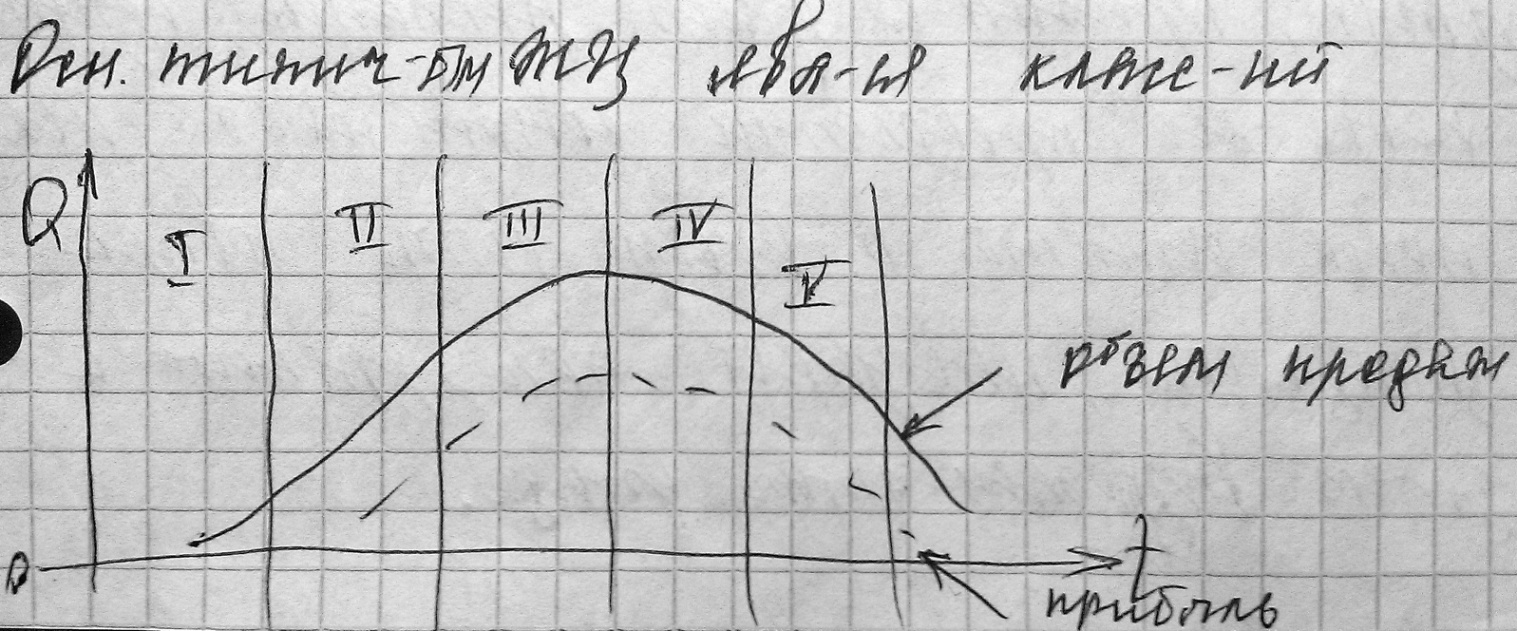 Осн. типич-ым ЖЦ явл-ся класс-ий
Q
I II III IV V
объем продаж
0
t
прибыль